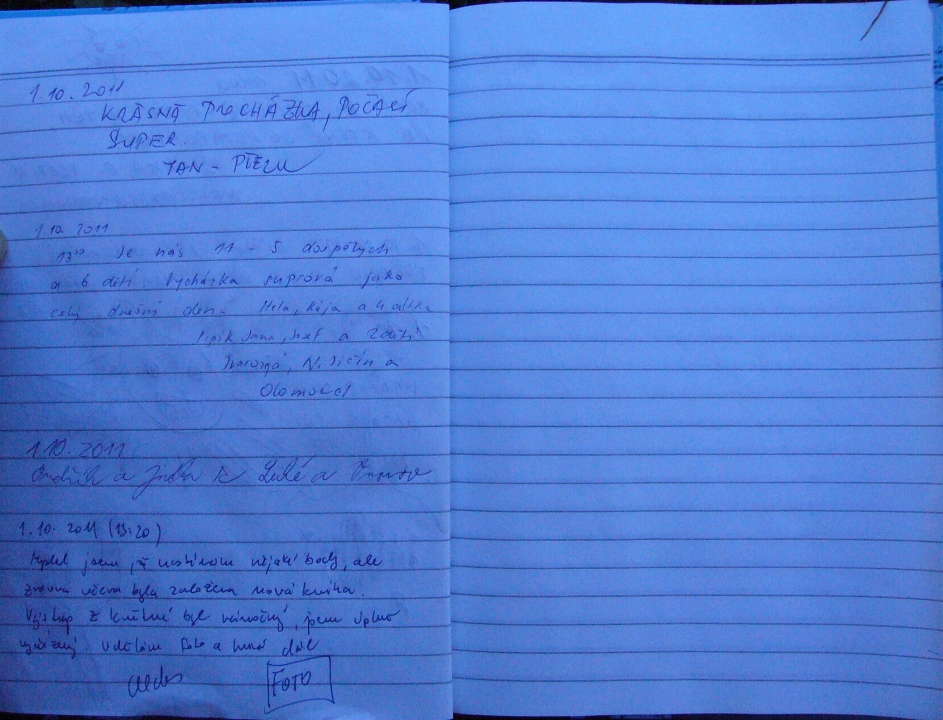 1.10. 2011
KRÁSNÁ PROCHÁZKA, POČASÍ
SUPER.
JAN - PTENÍ
1.10. 2011
13²⁰ Je nás 11 - 5 dospělých
a 6 dětí. Vycházka suprová jako
celý dnešní den. Hela, Kája a 4 dítka
Jana, a 2 děti
N. Jičín a
Olomouc
1.10. 2011
Ondřík a Jitka K
1.10. 2011 (13:20)
Myslel jsem, že nasbírám nějaké body, ale
zrovna včera byla založena nová kniha.
Výstup z byl náročný, jsem úplně
vyřízený. Udělám foto a hurá dál
FOTO